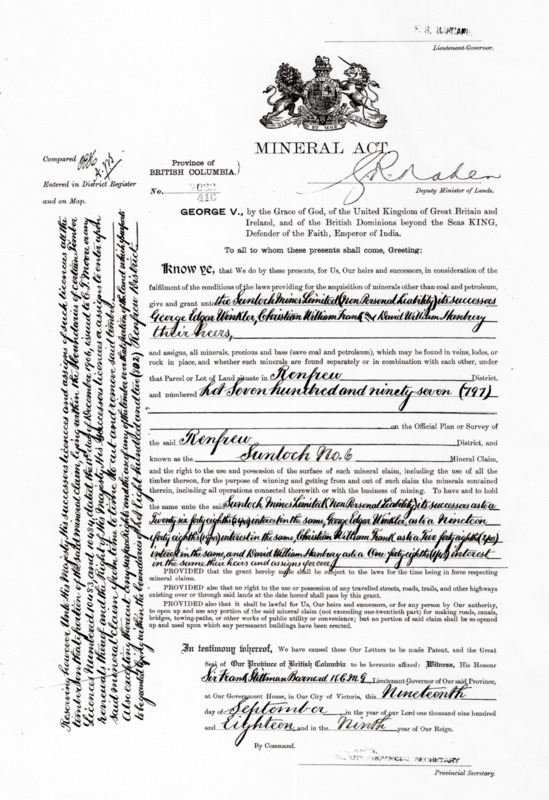 F. S. BARNARD
Lieutenant-Governor.
MINERAL ACT.
Compared
Entered in District Register
and on Map.
Province of
BRITISH COLUMBIA.
No.
Deputy Minister of Lands.
GEORGE V., by the Grace of God, of the United Kingdom of Great Britain and
Ireland, and of the British Dominions beyond the Seas KING,
Defender of the Faith, Emperor of India.
To all to whom these presents shall come, Greeting:
Know ye, that We do by these presents, for Us, Our heirs and successors, in consideration of the
fulfilment of the conditions of the laws providing for the acquisition of minerals other than coal and petroleum,
give and grant unto the Sunloch Mines Limited (Non Personal Liability) its successors
George Edgar Winkler, Christian William Frank and David William Hanbury
their heirs,
and assigns, all minerals, precious and base (save coal and petroleum), which may be found in veins, lodes, or
rock in place, and whether such minerals are found separately or in combination with each other, under
that Parcel or Lot of Land situate in Renfrew District,
and numbered Lot Seven hundred and ninety seven (797)
on the Official Plan or Survey of
the said Renfrew District, and
known as the Sunloch No. 6 Mineral Claim,
and the right to the use and possession of the surface of such mineral claim, including the use of all the
timber thereon, for the purpose of winning and getting from and out of such claim the minerals contained
therein, including all operations connected therewith or with the business of mining. To have and to hold
the same unto the said Sunloch Mines Limited (Non Personal Liability) its successors as to a
Twenty six forty eighths interest in the same, George Edgar Winkler, as to a Nineteen
forty eighths interest in the same, Christian William Frank as to a Two forty eighths
interest in the same, and David William Hanbury as to a One forty eighth interest
in the same their heirs and assigns for ever
PROVIDED that the grant hereby made shall be subject to the laws for the time being in force respecting
mineral claims.
PROVIDED also that no right to the use or possession of any travelled streets, roads, trails, and other highways
existing over or through said lands at the date hereof shall pass by this grant.
PROVIDED also that it shall be lawful for Us, Our heirs and successors, or for any person by Our Authority,
to open up and use any portion of the said mineral claim (not exceeding one-twentieth part) for making roads, canals,
bridges, towing-paths, or other works of public utility or convenience; but no portion of said claim shall be so opened
up and used upon which any permanent buildings have been erected.
In testimony whereof, We have caused these Our Letters to be made Patent, and the Great
Seal of Our Province of British Columbia to be hereunto affixed: Witness, His Honour
Sir Frank Stillman Barnard K.C.M.G. Lieutenant-Governor of Our said Province,
at Our Government House, in Our City of Victoria, this Nineteenth
day of September in the year of our Lord one thousand nine hundred
and Eighteen, and in the Ninth year of Our Reign.
By Command.
DEPUTY PROVINCIAL SECRETARY
Provincial Secretary.
Reserving however Unto His Majesty, his successors licencees and assigns of such licencees all the
timber on that portion of said mineral claim, lying within the boundaries of certain Timber
Licence numbered 10083, and dated the day of December 1906, issued to
renewals thereof and the Right of His Majesty his successors licencees or assigns to enter upon
said mineral claim from time to time to cut and remove said timber